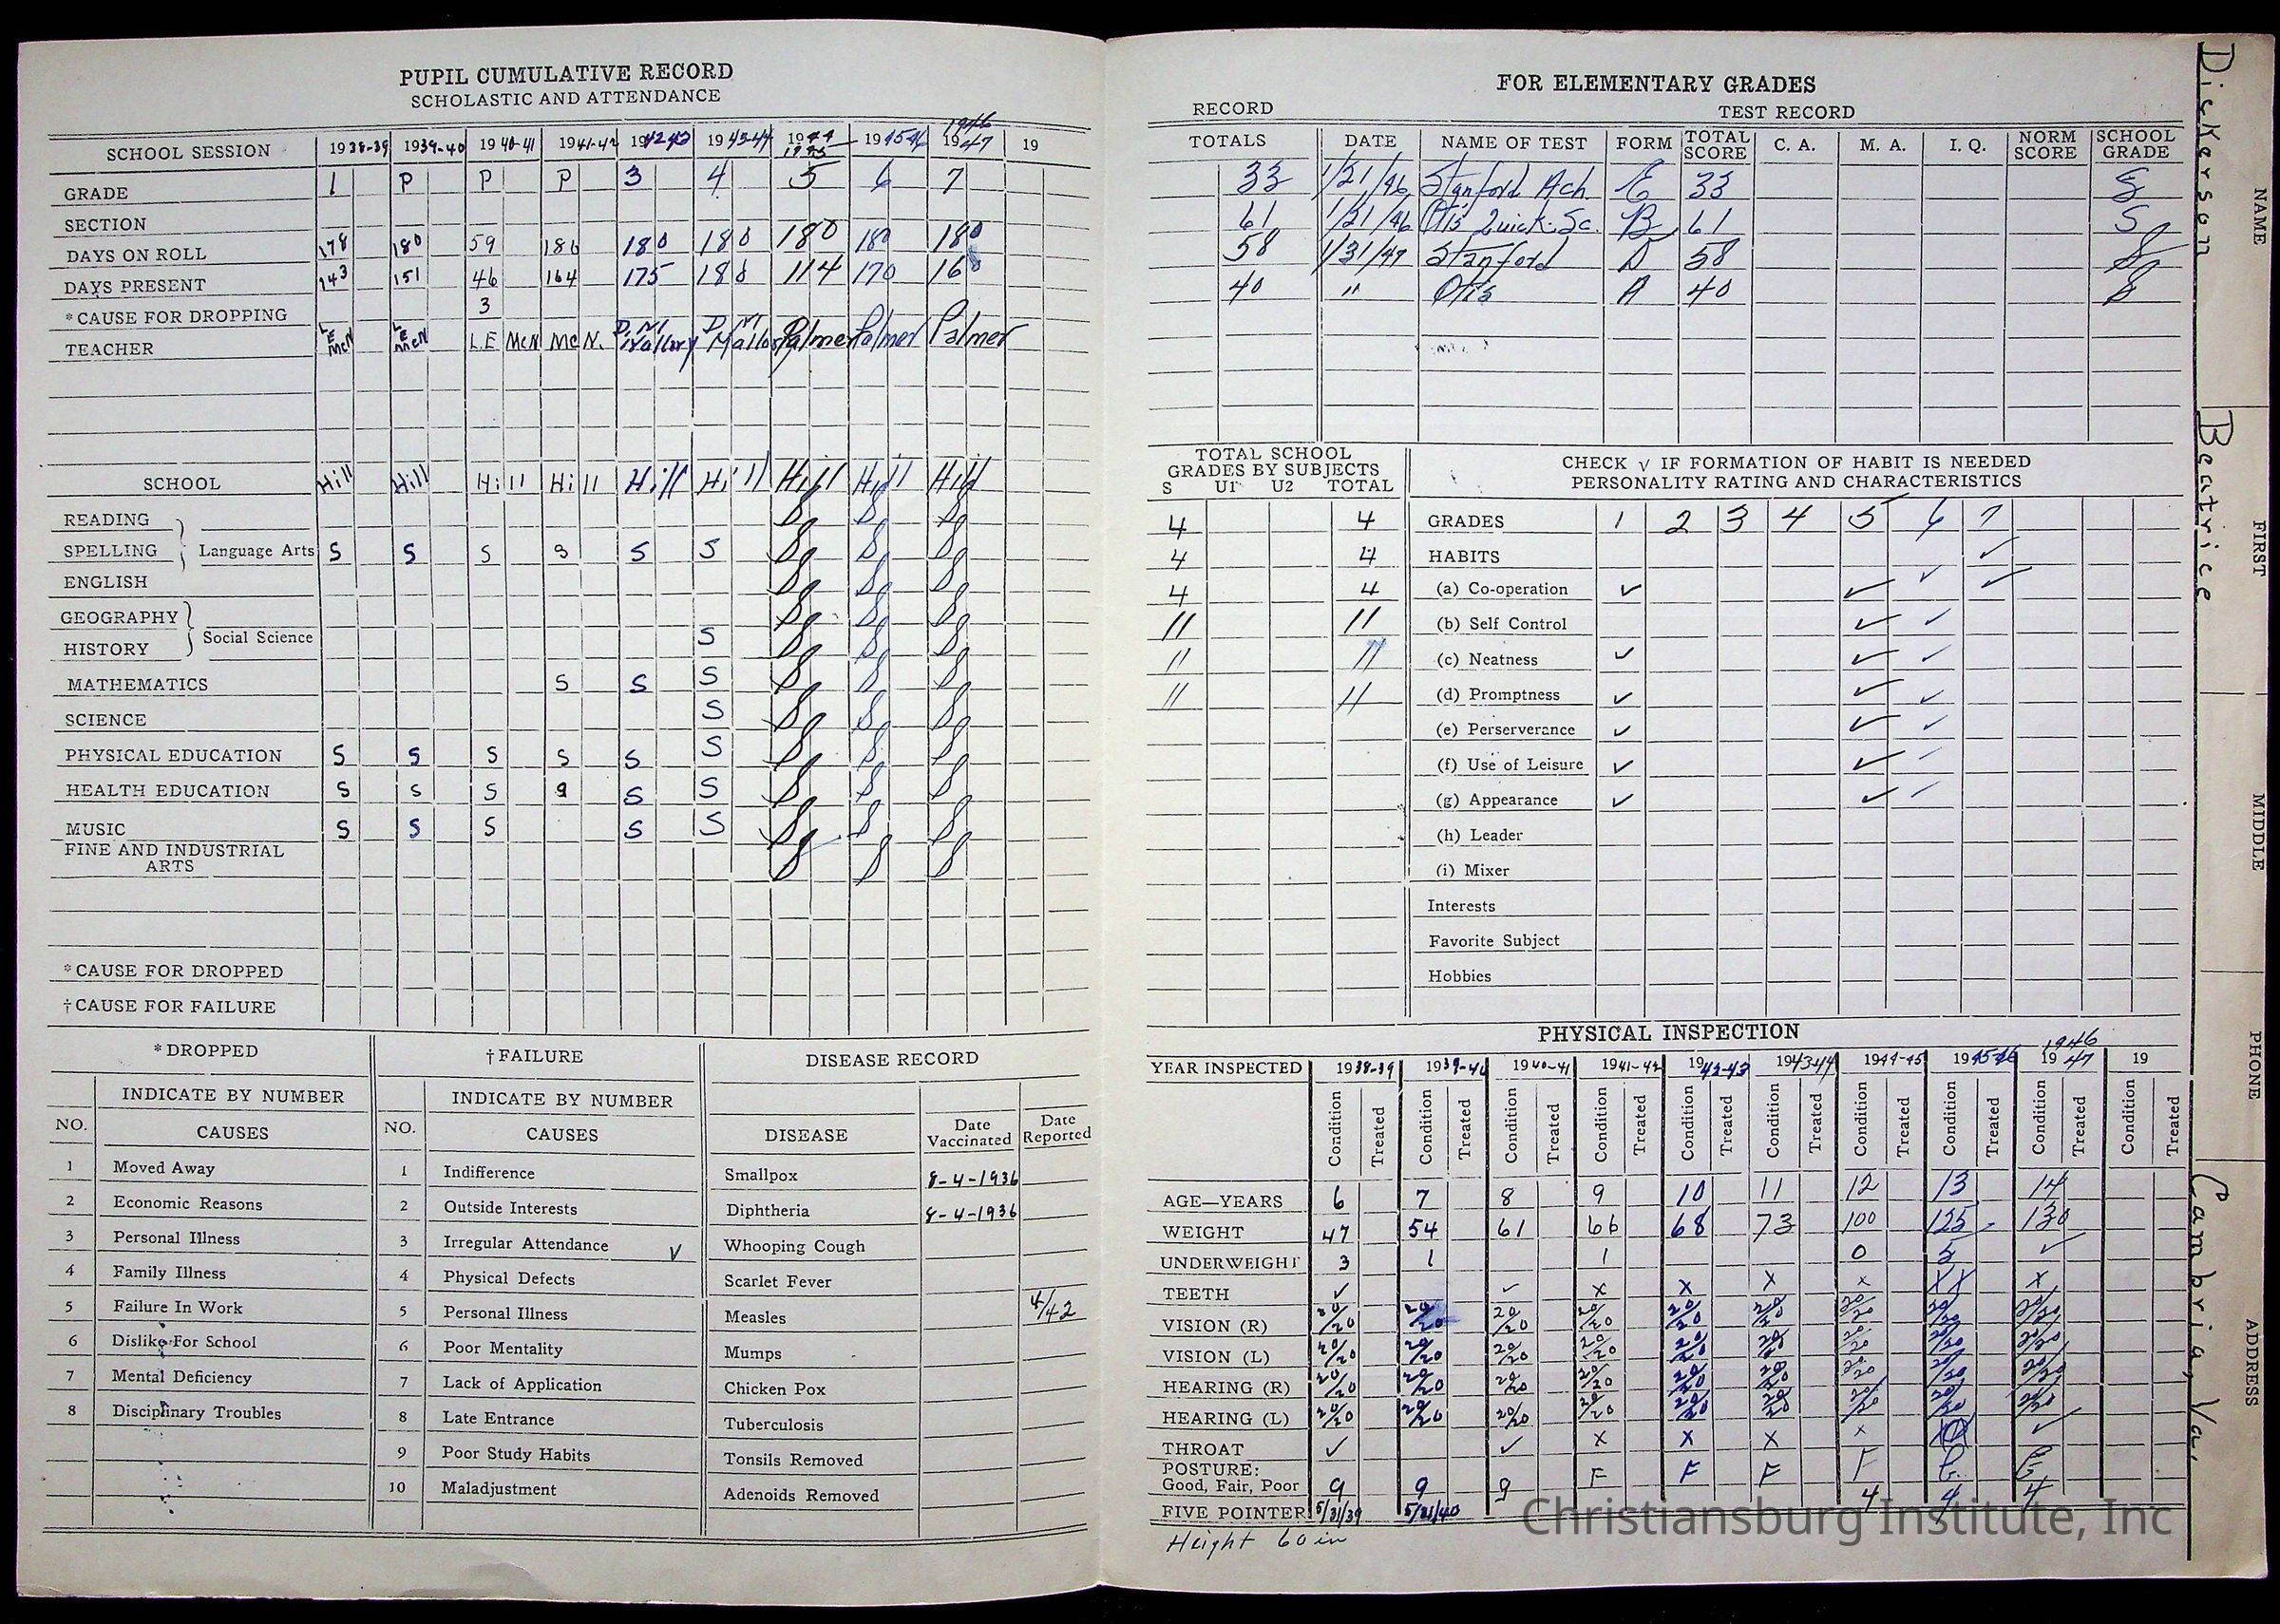 PUPIL CUMULATIVE RECORD
SCHOLASTIC AND ATTENDANCE
SCHOOL SESSION 1938-39 1939-40 1940-41 1941-42 1942-43 1943-44 1944 1945 1945-46 1946 1947 19
GRADE 1 P P P 3 4 5 6 7
SECTION
DAYS ON ROLL 178 180 59 180 180 180 180 180
DAYS PRESENT 143 151 46 164 175 180 114 170 160
*CAUSE FOR DROPPING 3
TEACHER L E McN L E McN L.E McN McN. D. M. Mallory D. M. Mallory Palmer Palmer Palmer
SCHOOL Hill Hill Hill Hill Hill Hill Hill Hill Hill
READING S S S
SPELLING Language Arts S S S S S S S S S
ENGLISH S S S
GEOGRAPHY S S S
HISTORY Social Science S S S S
MATHEMATICS S S S S S S
SCIENCE S S S S
PHYSICAL EDUCATION S S S S S S S S S
HEALTH EDUCATION S S S S S S S S S
MUSIC S S S S S S S S
FINE AND INDUSTRIAL
ARTS S S S
*CAUSE FOR DROPPED
†CAUSE FOR FAILURE
*DROPPED
INDICATE BY NUMBER
NO. CAUSES
1 Moved Away
2 Economic Reasons
3 Personal Illness
4 Family Illness
5 Failure In Work
6 Dislike For School
7 Mental Deficiency
8 Disciplinary Troubles
†FAILURE
INDICATE BY NUMBER
NO. CAUSES
1 Indifference
2 Outside Interests
3 Irregular Attendance √
4 Physical Defects
5 Personal Illness
6 Poor Mentality
7 Lack of Application
8 Late Entrance
9 Poor Study Habits
10 Maladjustment
DISEASE RECORD
DISEASE Date Vaccinated Date Reported
Smallpox 8-4-1936
Diphtheria 8-4-1936
Whooping Cough
Scarlet Fever
Measles 4/42
Mumps
Chicken Pox
Tuberculosis
Tonsils Removed
Adenoids Removed
FOR ELEMENTARY GRADES
RECORD TEST RECORD
TOTALS DATE NAME OF TEST FORM TOTAL SCORE C. A. M. A. I. Q. NORM SCORE SCHOOL GRADE
33 1/21/46 Stanford Ach. E 33
61 1/21/46 Otis Quick-Sc. B 61
58 1/31/47 Stanford D 58
40 " Otis A 40
TOTAL SCHOOL
GRADES BY SUBJECTS
S U1 U2 TOTAL
4 4
4 4
4 4
11 11
11 11
11 11
CHECK √ IF FORMATION OF HABIT IS NEEDED
PERSONALITY RATING AND CHARACTERISTICS
GRADES 1 2 3 4 5 6 7
HABITS ✓
(a) Co-operation ✓ ✓ ✓ ✓
(b) Self Control ✓ ✓
(c) Neatness ✓ ✓ ✓
(d) Promptness ✓ ✓ ✓
(e) Perserverance ✓ ✓ ✓
(f) Use of Leisure ✓ ✓ ✓
(g) Appearance ✓ ✓ ✓
(h) Leader
(i) Mixer
Interests
Favorite Subject
Hobbies
PHYSICAL INSPECTION
YEAR INSPECTED 1938-39 1939-40 1940-41 1941-42 1942-43 1943-44 1944-45 1945-46 1946 1947 19
Condition Treated Condition Treated Condition Treated Condition Treated Condition Treated Condition Treated Condition Treated Condition Treated Condition Treated Condition Treated
AGE—YEARS 6 7 8 9 10 11 12 13 14
WEIGHT 47 54 61 66 68 73 100 125 130
UNDERWEIGHT 3 1 1 0 5 ✓
TEETH ✓ ✓ x x x x XX x
VISION (R) 20/20 20/20 20/20 20/20 20/20 20/20 20/20 20/20 20/20
VISION (L) 20/20 20/20 20/20 20/20 20/20 20/20 20/20 20/20 20/20
HEARING (R) 20/20 20/20 20/20 20/20 20/20 20/20 20/20 20/20 20/20
HEARING (L) 20/20 20/20 20/20 20/20 20/20 20/20 20/20 20/20 20/20
THROAT ✓ ✓ x x x x ✓
POSTURE:
Good, Fair, Poor g g g F F F F G G
FIVE POINTER 5/31/39 5/31/40 4 4 4
Height 60 in
Christiansburg Institute, Inc
Dickerson Beatrice Cambria, Va.
NAME FIRST MIDDLE PHONE ADDRESS